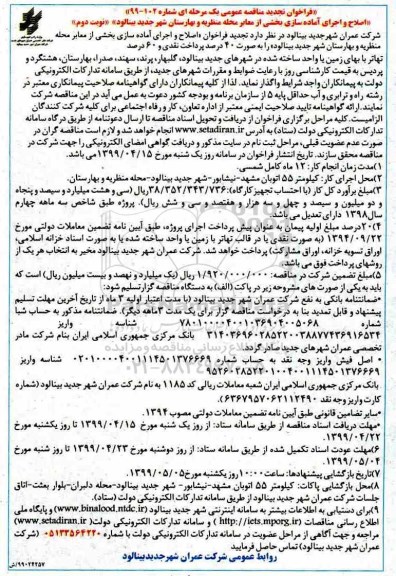 «فراخوان تجدید مناقصه عمومی یک مرحله ای شماره ۱۰۲-۹۹»
«اصلاح و اجرای آماده سازی بخشی از معابر محله منظریه و بهارستان شهر جدید بینالود» «نوبت دوم»
شرکت عمران شهرجدید بینالود در نظر دارد تجدید فراخوان «اصلاح و اجرای آماده سازی بخشی از معابر محله
منظریه و بهارستان شهر جدید بینالود» را به صورت ۴۰ درصد پرداخت نقدی و ۶۰ درصد
تهاتر با بهای زمین یا واحد ساخته شده در شهرهای جدید بینالود، گلبهار، پرند، سهند، صدرا، بهارستان، هشتگرد و
پردیس به قیمت کارشناسی روز با رعایت ضوابط و مقررات شهرهای جدید، از طریق سامانه تدارکات الکترونیکی
دولت به پیمانکاران واجد شرایط واگذار نماید. لذا از کلیه پیمانکاران دارای گواهینامه صلاحیت پیمانکاری معتبر در
رشته راه و ترابری و آب حداقل پایه ۵ از سازمان برنامه و بودجه کشور دعوت به عمل می آید در این مناقصه شرکت
نمایند. ارائه گواهینامه تایید صلاحیت ایمنی معتبر از اداره تعاون، کار و رفاه اجتماعی برای کلیه شرکت کنندگان
الزامیست. کلیه مراحل برگزاری فراخوان از دریافت و تحویل اسناد مناقصه تا ارسال دعوتنامه از طریق درگاه سامانه
تدارکات الکترونیکی دولت (ستاد) به آدرس www.setadiran.ir انجام خواهد شد و لازم است مناقصه گران در
صورت عدم عضویت قبلی، مراحل ثبت نام در سایت مذکور و دریافت گواهی امضای الکترونیکی را جهت شرکت در
مناقصه محقق سازند. تاریخ انتشار فراخوان در سامانه روز یک شنبه مورخ ۱۳۹۹/۰۴/۱۵ می باشد.
۱)مدت زمان انجام کار: ۱۲ ماه کامل شمسی.
۲)محل اجرای کار: کیلومتر ۵۵ اتوبان مشهد-نیشابور-شهر جدید بینالود-محله منظریه و بهارستان.
۳)مبلغ برآورد کل کار (با احتساب تجهیز کارگاه): ۳۸/۳۵۲/۳۴۳/۷۳۶ ریال (سی و هشت میلیارد و سیصد و پنجاه
و دو میلیون و سیصد و چهل و سه هزار و هفتصد و سی و شش ریال). پروژه طبق شاخص سه ماهه چهارم
سال ۱۳۹۸ دارای تعدیل می باشد.
۴)۲۰ درصد مبلغ اولیه پیمان به عنوان پیش پرداخت اجرای پروژه، طبق آیین نامه تضمین معاملات دولتی مورخ
۱۳۹۴/۰۹/۲۲ (به صورت نقدی یا در قالب تهاتر با زمین یا واحد ساخته شده یا به صورت اسناد خزانه اسلامی،
اوراق تسویه خزانه، اوراق مشارکت) پرداخت خواهد شد. شرکت عمران شهر جدید بینالود مخیر به انتخاب هر یک از
روشهای پرداخت فوق می باشد.
۵)مبلغ تضمین شرکت در مناقصه: ۱/۹۲۰/۰۰۰/۰۰۰ ریال (یک میلیارد و نهصد و بیست میلیون ریال) است که
باید به یکی از صورت های مشروحه زیر در پاکت (الف) به دستگاه مناقصه گزار تسلیم شود:
*ضمانتنامه بانکی به نفع شرکت عمران شهر جدید بینالود (با مدت اعتبار اولیه ۳ ماه از تاریخ آخرین مهلت تسلیم
پیشنهاد و قابل تمدید بنا به درخواست مناقصه گزار برای یک مدت ۳ماهه دیگر). ضمانتنامه مذکور به حساب شبا
شماره شناسه واریز
بانک مرکزی جمهوری اسلامی ایران بنام شرکت مادر
تخصصی عمران شهرهای جدید صادر گردد.
* اصل فیش واریز وجه نقد به حساب شماره شناسه واریز
بانک مرکزی جمهوری اسلامی ایران شعبه معاملات ریالی کد ۱۱۸۵ به نام شرکت عمران شهر جدید بینالود (شماره
کارت واریز وجه نقد
*سایر تضامین قانونی طبق آیین نامه تضمین معاملات دولتی مصوب ۱۳۹۴.
*مهلت دریافت اسناد مناقصه از طریق سامانه ستاد: از روز یک شنبه مورخ ۱۳۹۹/۰۴/۱۵ تا روز یکشنبه مورخ
۱۳۹۹/۰۴/۲۲
۶)مهلت عودت اسناد تکمیل شده از طریق سامانه ستاد: از روز دوشنبه مورخ ۱۳۹۹/۰۴/۲۳ تا روز شنبه مورخ
۱۳۹۹/۰۵/۰۴
۷)تاریخ بازگشایی پیشنهادها: ساعت ۱۰:۰۰ روز یکشنبه مورخ ۱۳۹۹/۰۵/۰۵
۸)محل بازگشایی پاکات: کیلومتر ۵۵ اتوبان مشهد-نیشابور- شهر جدید بینالود-محله دلبران-بلوار بعثت-اتاق
جلسات شرکت عمران شهر جدید بینالود از طریق سامانه تدارکات الکترونیکی دولت (ستاد).
۹)برای دستیابی به اطلاعات بیشتر به سامانه اینترنتی شهر جدید بینالود (www.binalood.ntdc.ir) و پایگاه ملی
اطلاع رسانی مناقصات (http://iets.mporg.ir) و سامانه تدارکات الکترونیکی دولت (www.setadiran.ir)
مراجعه و جهت آگاهی از مراحل عضویت در سامانه تدارکات الکترونیکی دولت با شماره ۰۵۱۳۳۵۶۴۲۴۰ (شرکت
عمران شهر جدید بینالود) تماس حاصل فرمایید
روابط عمومی شرکت عمران شهرجدیدبینالود